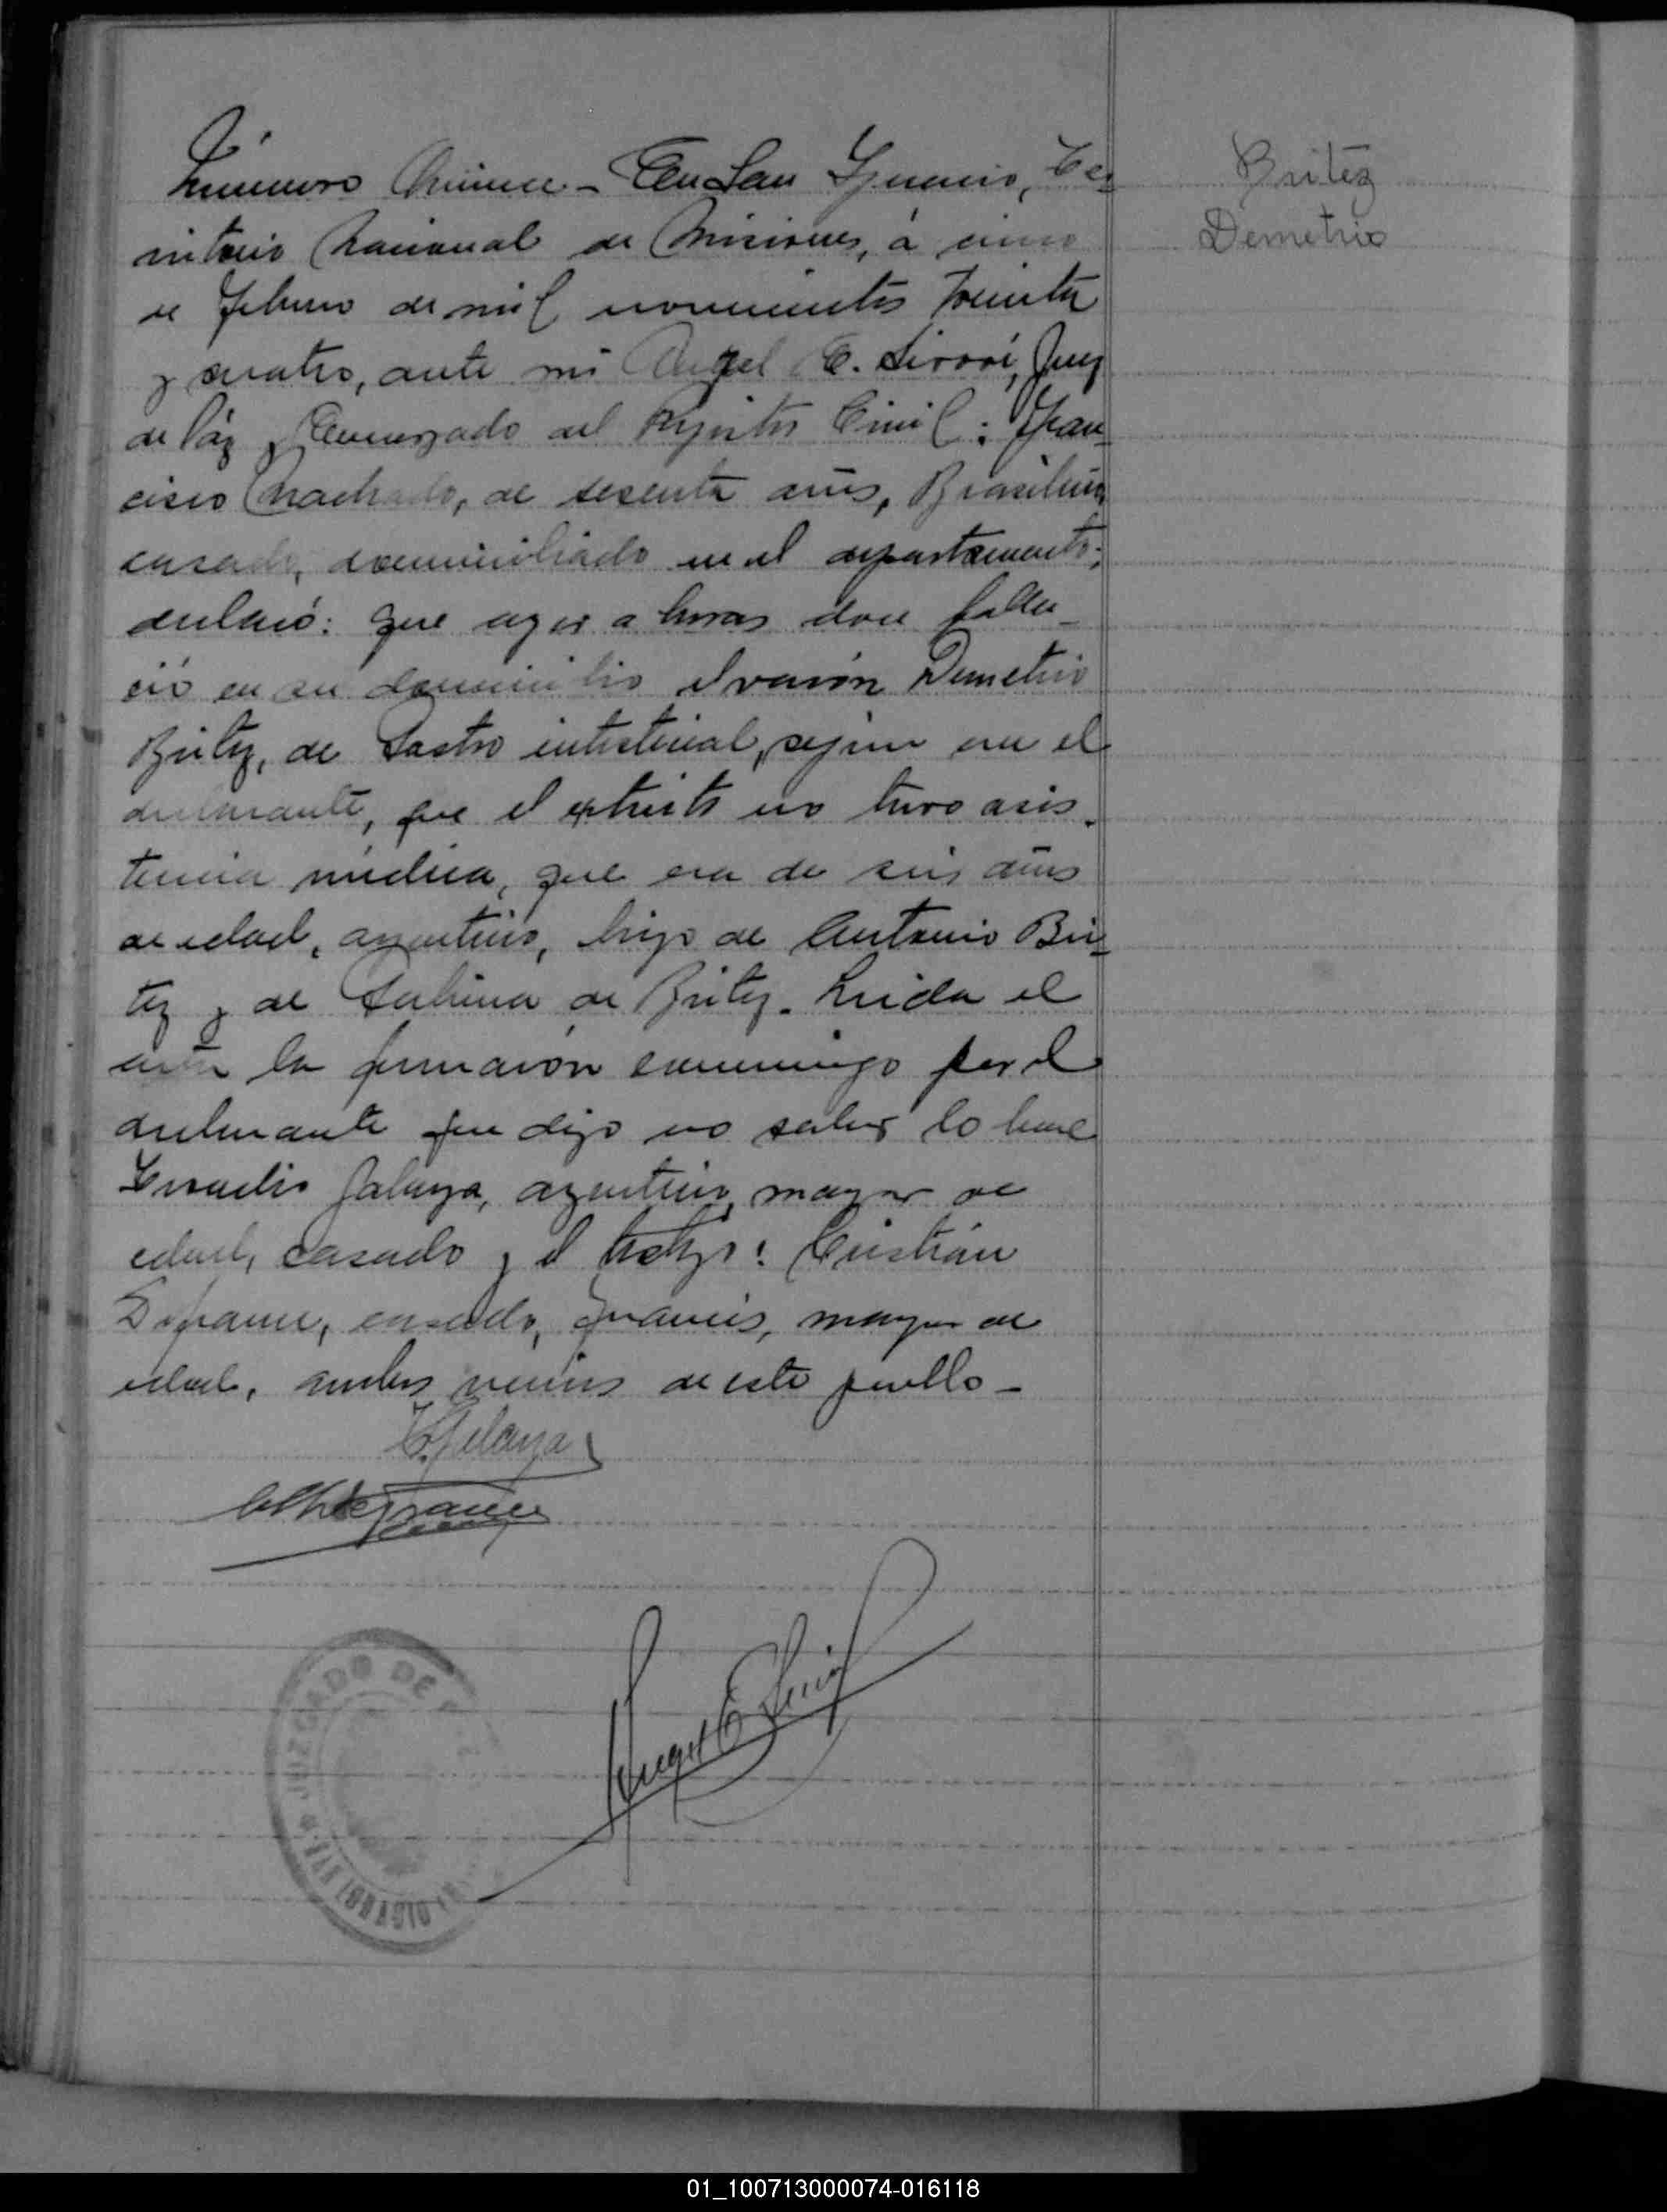 Número Quince - En San Ignacio, Te-
rritorio Nacional de Misiones, á cinco
de Febrero de mil novecientos treinta
y cuatro, ante mi Angel E. Jue
de Páz y Encargado del Registro Civil: Fran-
cisco Machado, de sesenta años, Brasilero
casado, domiciliado en el departamento;
declaró: Que ayer a horas doce falle-
ció en su domicilio el varón Demetrio
Britez, de Gastro intestinal, segun cree el
declarante, que el extinto no tuvo asis-
tencia médica, que era de seis años
de edad, argentino, hijo de Antonio Bri-
tez y de Sabina de Britez. Leida el
acta la firmaron conmigo por el
declarante que dijo no saber lo hace
argentino, mayor de
edad, casado y el testigo: Cristián
casado, francés, mayor de
edad, ambos vecinos de este pueblo -
Angel E.
JUZGADO DE
SAN IGNACIO
Britez
Demetrio
01_100713000074-016118